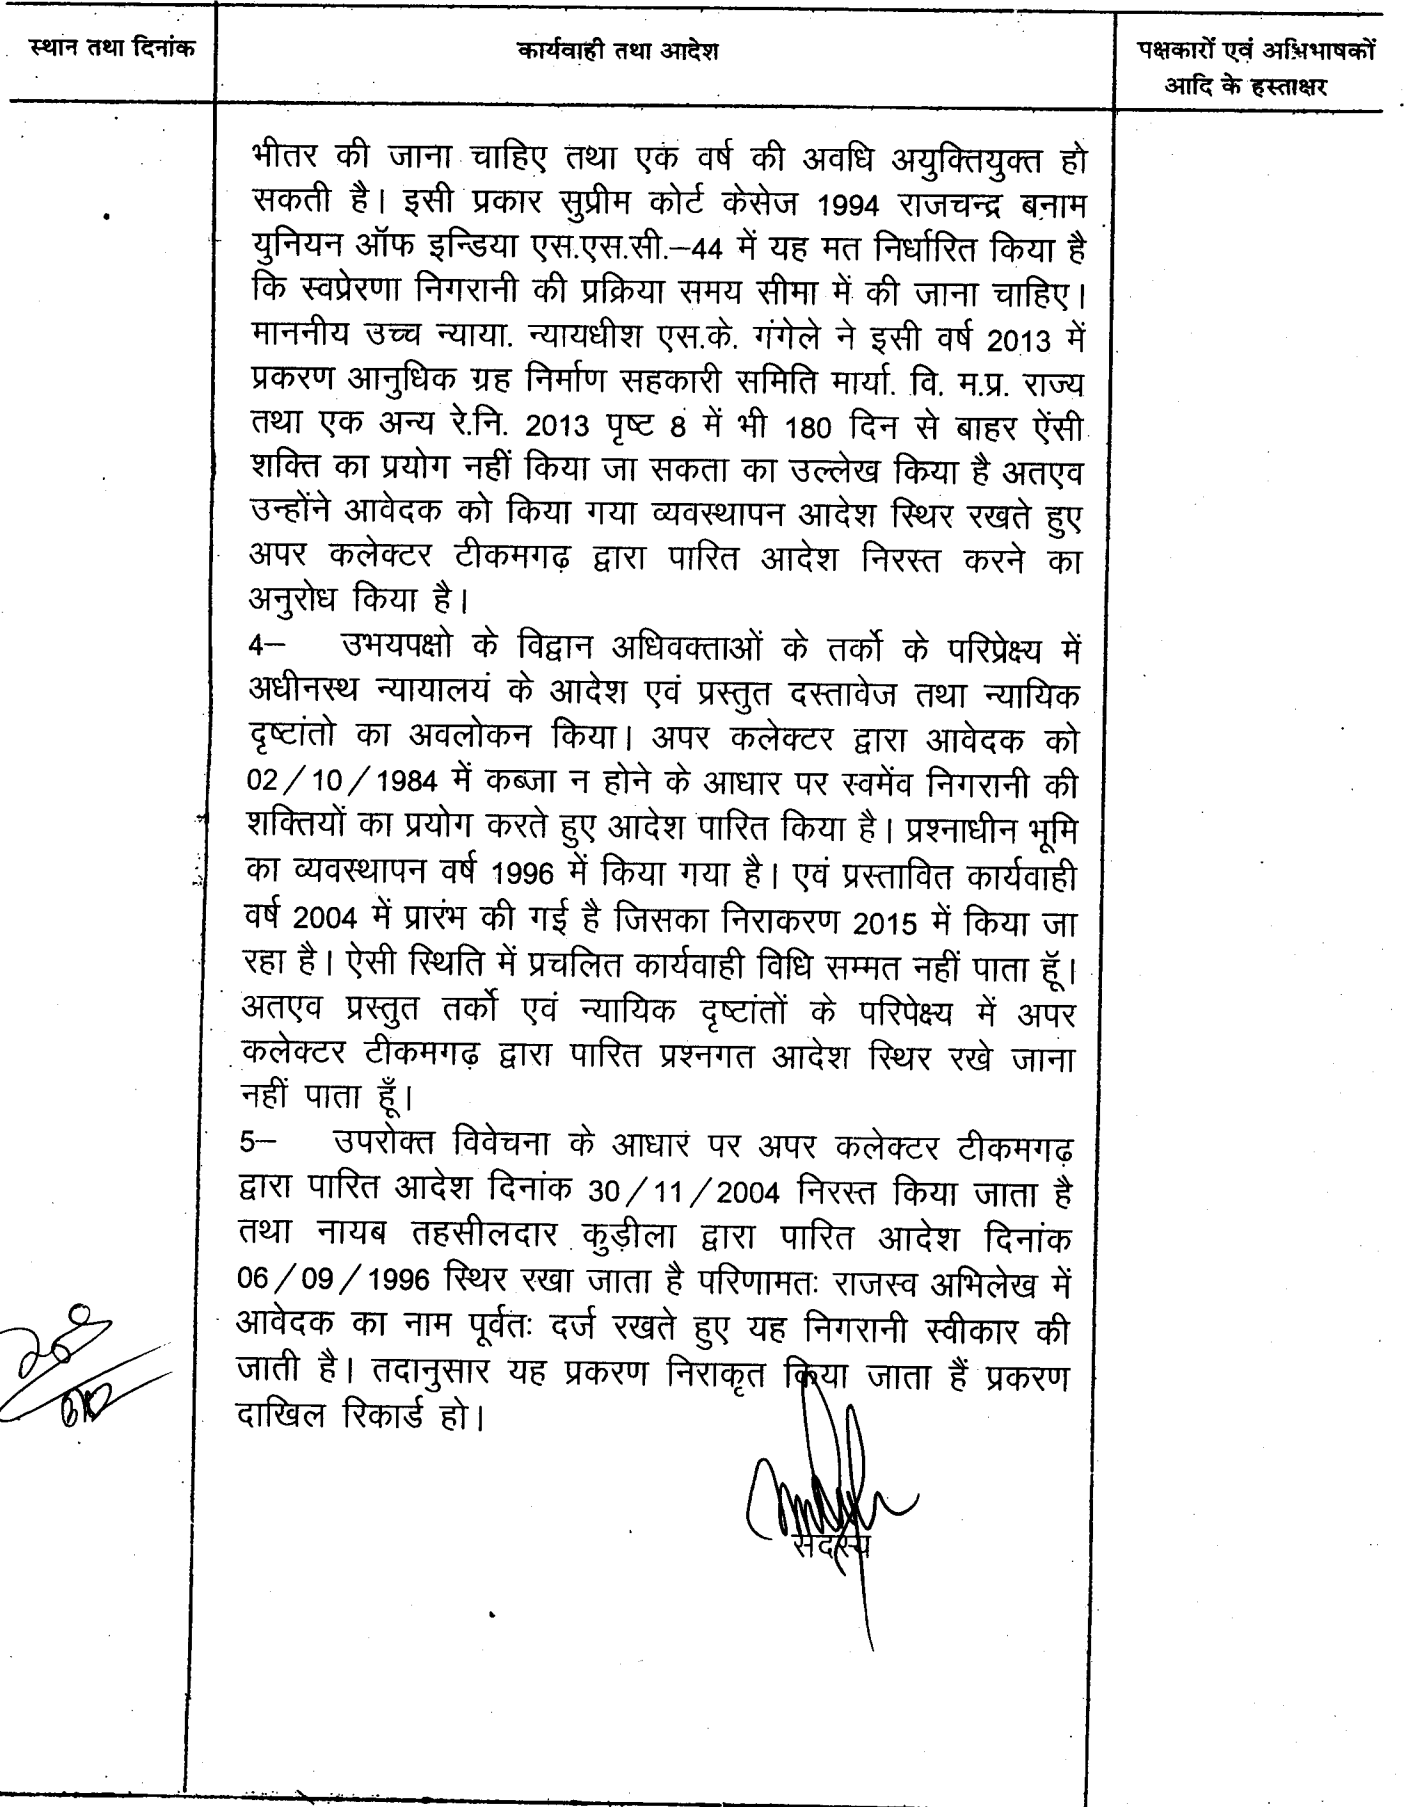 स्थान तथा दिनांक
कार्यवाही तथा आदेश
पक्षकारों एवं अभिभाषकों
आदि के हस्ताक्षर
भीतर की जाना चाहिए तथा एक वर्ष की अवधि अयुक्तियुक्त हो
सकती है। इसी प्रकार सुप्रीम कोर्ट केसेज 1994 राजचन्द्र बनाम
युनियन ऑफ इन्डिया एस.एस.सी.–44 में यह मत निर्धारित किया है
कि स्वप्रेरणा निगरानी की प्रक्रिया समय सीमा में की जाना चाहिए।
माननीय उच्च न्याया. न्यायधीश एस.के. गंगेले ने इसी वर्ष 2013 में
प्रकरण आनुधिक ग्रह निर्माण सहकारी समिति मार्या. वि. म.प्र. राज्य
तथा एक अन्य रे.नि. 2013 पृष्ट 8 में भी 180 दिन से बाहर ऐंसी
शक्ति का प्रयोग नहीं किया जा सकता का उल्लेख किया है अतएव
उन्होंने आवेदक को किया गया व्यवस्थापन आदेश स्थिर रखते हुए
अपर कलेक्टर टीकमगढ़ द्वारा पारित आदेश निरस्त करने का
अनुरोध किया है।
4– उभयपक्षो के विद्वान अधिवक्ताओं के तर्को के परिप्रेक्ष्य में
अधीनस्थ न्यायालयं के आदेश एवं प्रस्तुत दस्तावेज तथा न्यायिक
दृष्टांतो का अवलोकन किया। अपर कलेक्टर द्वारा आवेदक को
02/10/1984 में कब्जा न होने के आधार पर स्वमेंव निगरानी की
शक्तियों का प्रयोग करते हुए आदेश पारित किया है। प्रश्नाधीन भूमि
का व्यवस्थापन वर्ष 1996 में किया गया है। एवं प्रस्तावित कार्यवाही
वर्ष 2004 में प्रारंभ की गई है जिसका निराकरण 2015 में किया जा
रहा है। ऐसी स्थिति में प्रचलित कार्यवाही विधि सम्मत नहीं पाता हूॅ।
अतएव प्रस्तुत तर्को एवं न्यायिक दृष्टांतों के परिपेक्ष्य में अपर
कलेक्टर टीकमगढ़ द्वारा पारित प्रश्नगत आदेश स्थिर रखे जाना
नहीं पाता हूँ।
5– उपरोक्त विवेचना के आधार पर अपर कलेक्टर टीकमगढ़
द्वारा पारित आदेश दिनांक 30/11/2004 निरस्त किया जाता है
तथा नायब तहसीलदार कुड़ीला द्वारा पारित आदेश दिनांक
06/09/1996 स्थिर रखा जाता है परिणामतः राजस्व अभिलेख में
आवेदक का नाम पूर्वतः दर्ज रखते हुए यह निगरानी स्वीकार की
जाती है। तदानुसार यह प्रकरण निराकृत किया जाता हैं प्रकरण
दाखिल रिकार्ड हो।
सदस्य